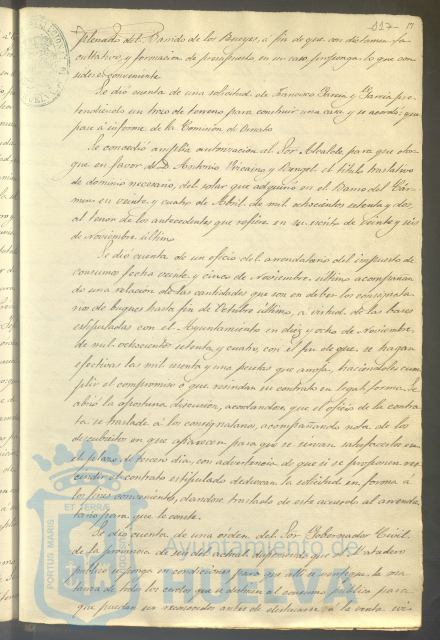 117 - 17
plenado del Barrio de los Bueyes, á fin de que con dictamen fa
cultativo, y formacion de presupuesto en su caso proponga lo que con
sidere conveniente
Se dió cuenta de una solicitud de Francisco Garcia y Garcia pre
tendiendo un trozo de terreno para construir una casa y se acordó: que
pase á informe de la Comision de Ornato
Se concedió amplia autorizacion al Sor Alcalde para que otor
gue en favor de D. Antonio Vizcaino y Rengel el titulo traslativo
de dominio necesario, del solar que adquirió en el Barrio del Cár
men en veinte y cuatro de Abril de mil ochocientos setenta y dos,
al tenor de los antecedentes que refiere en su escrito de veinte y seis
de Noviembre último
Se dió cuenta de un oficio del arrendatario del impuesto de
consumos fecha veinte y cinco de Noviembre último acompañan
do una relacion de las cantidades que son en deber los consignata
rios de buques hasta fin de Octubre último, á virtud de las bases
estipuladas con el Ayuntamiento en diez y ocho de Noviembre
de mil ochocientos setenta y cuatro, con el fin de que se hagan
efectivas las mil y una pesetas que arroja, haciendoles cum
plir el compromiso ó que rescindan su contrato en legal forma. Se
abrió la oportuna discusion, acordandose que el oficio de la contra
ta se traslade á los consignatarios, acompañando nota de los
descubiertos en que aparecen para que se sirvan satisfacerlos en
el plazo de tercero dia, con advertencia de que si se proponen res
cindir el contrato estipulado deduzcan la solicitud en forma á
los fines convenientes, dandose traslado de este acuerdo al arrenda
tario para que le conste.
Se dió cuenta de una órden del Sor Gobernador Civil
de la provincia de seis del actual disponiendo que el Matadero
público se ponga en condiciones para que allí se verifique la ma
tanza de todos los cerdos que se destinen al consumo público para
que puedan ser reconocidos antes de destinarse á la venta, evi
PORTUS MARIS
ET TERRÆ
CUSTODIA
Ayuntamiento de
HUELVA